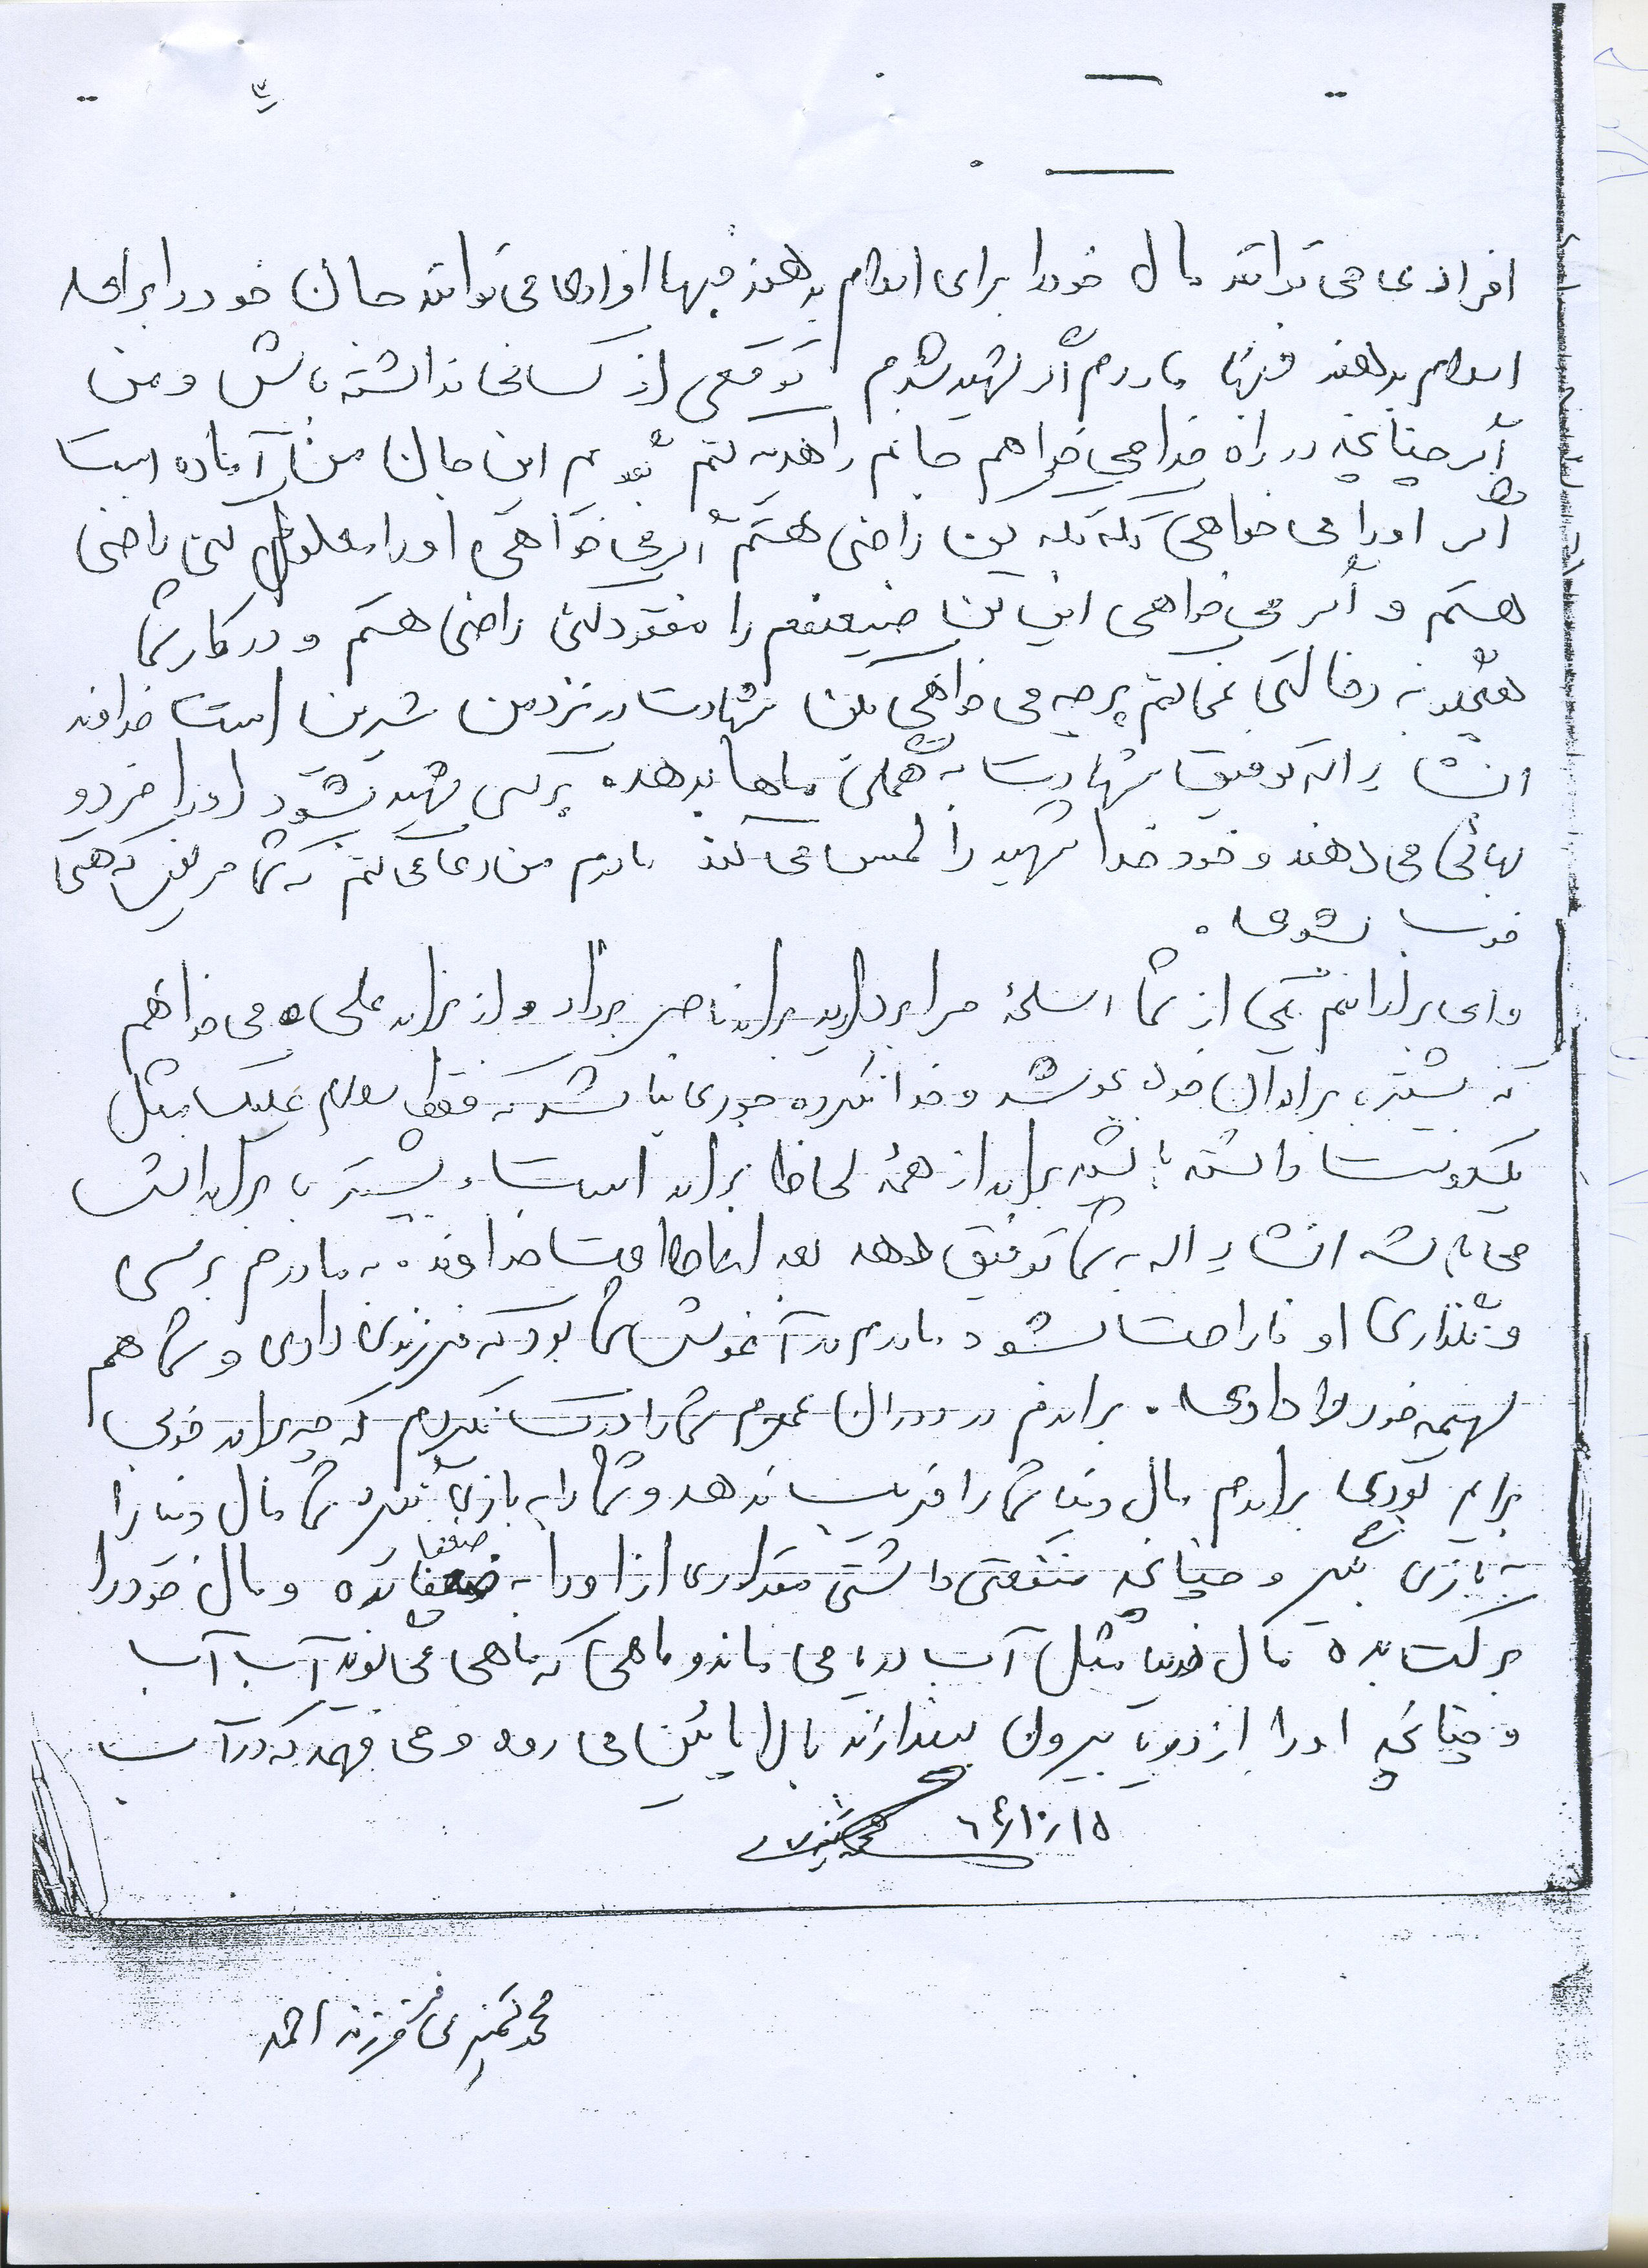 افرادی می توانند مال خود را برای اسلام بدهند چه بسا افرادی می توانند جان خود را برای
اسلام بدهند مادرم اگر شهید شدم توقعی از کسانی نداشته باش و من
اگر چنانچه در راه خدا می خواهم جانم را هدیه کنم این جان من آماده است
اگر او را می خواهی تکه تکه کن راضی هستم اگر می خواهی او را معلول کنی راضی
هستم و اگر می خواهی این تن ضعیفم را مفقود کنی راضی هستم و در کار شما
هیچگونه دخالتی نمی کنم هر چه می خواهی بکن شهادت در نزد من شیرین است خداوند
انشاء اله توفیق شهادت به همگی ماها بدهد هر کس شهید بشود او را مزد و
بهائی می دهند و خود خدا شهید را لمس می کند مادرم من دعا می کنم که شما مریض که هستی
خوب بشوی .
و ای برادرانم یکی از شما اسلحهٔ مرا بردارید برادر ناصر بردارد و از برادر علی می خواهم
که بیشتر با برادران خود بجوشد و خدا نکرده جوری نباشد که فقط سلام علیک مثل
یکدوست داشته باشید برادر از همهٔ لحاظ برادر است و بیشتر با برادرانش
می باشد انشاء اله به شما توفیق دهد بعد اطاعت خداوند به مادرم برسی
و نگذاری او ناراحت بشود مادرم در آغوش شما بود که فرزندی دادی و شما هم
سهمیه خود را دادی . برادرم در دوران عمرم شما را درک نکردم که چه برادر خوبی
برایم بودی برادرم مال دنیا شما را فریب ندهد و شما را به بازی نگیرد شما مال دنیا را
به بازی بگیر و چنانچه منفعتی داشتی مقداری از او را به ضعفا بده و مال خود را
برکت بده مال دنیا مثل آب دریا می ماند و ماهی که ماهی می گوید آب آب
و چنانچه او را از دریا بیرون بیندازند بالا پائین می رود و می فهمد که در آب
۶۴/۱۰/۱۵
محمد کمیزی فرزند احمد